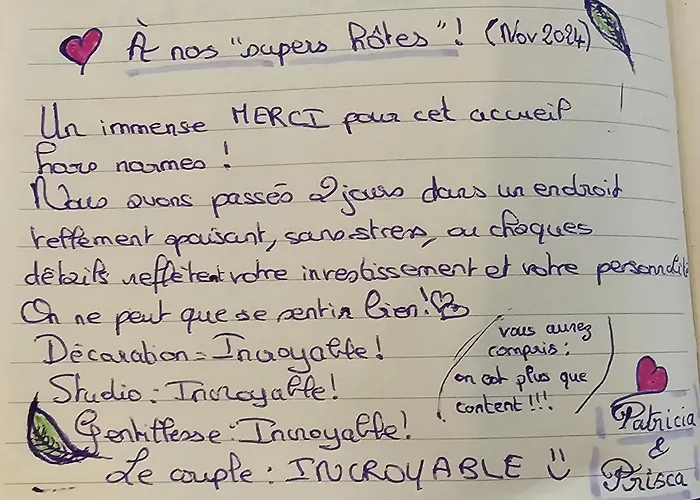 À nos "supers hôtes"! (Nov 2024)
Un immense MERCI pour cet accueil
hors normes !
Nous avons passés 2 jours dans un endroit
tellement apaisant, sans stress, ou chaques
détails reflètent votre investissement et votre personnalité
On ne peut que se sentir bien!
Décoration = Incroyable!
Studio : Incroyable!
Gentillesse : Incroyable!
Le couple : INCROYABLE
vous aurez
compris :
on est plus que
content !!!
Patricia
&
Prisca